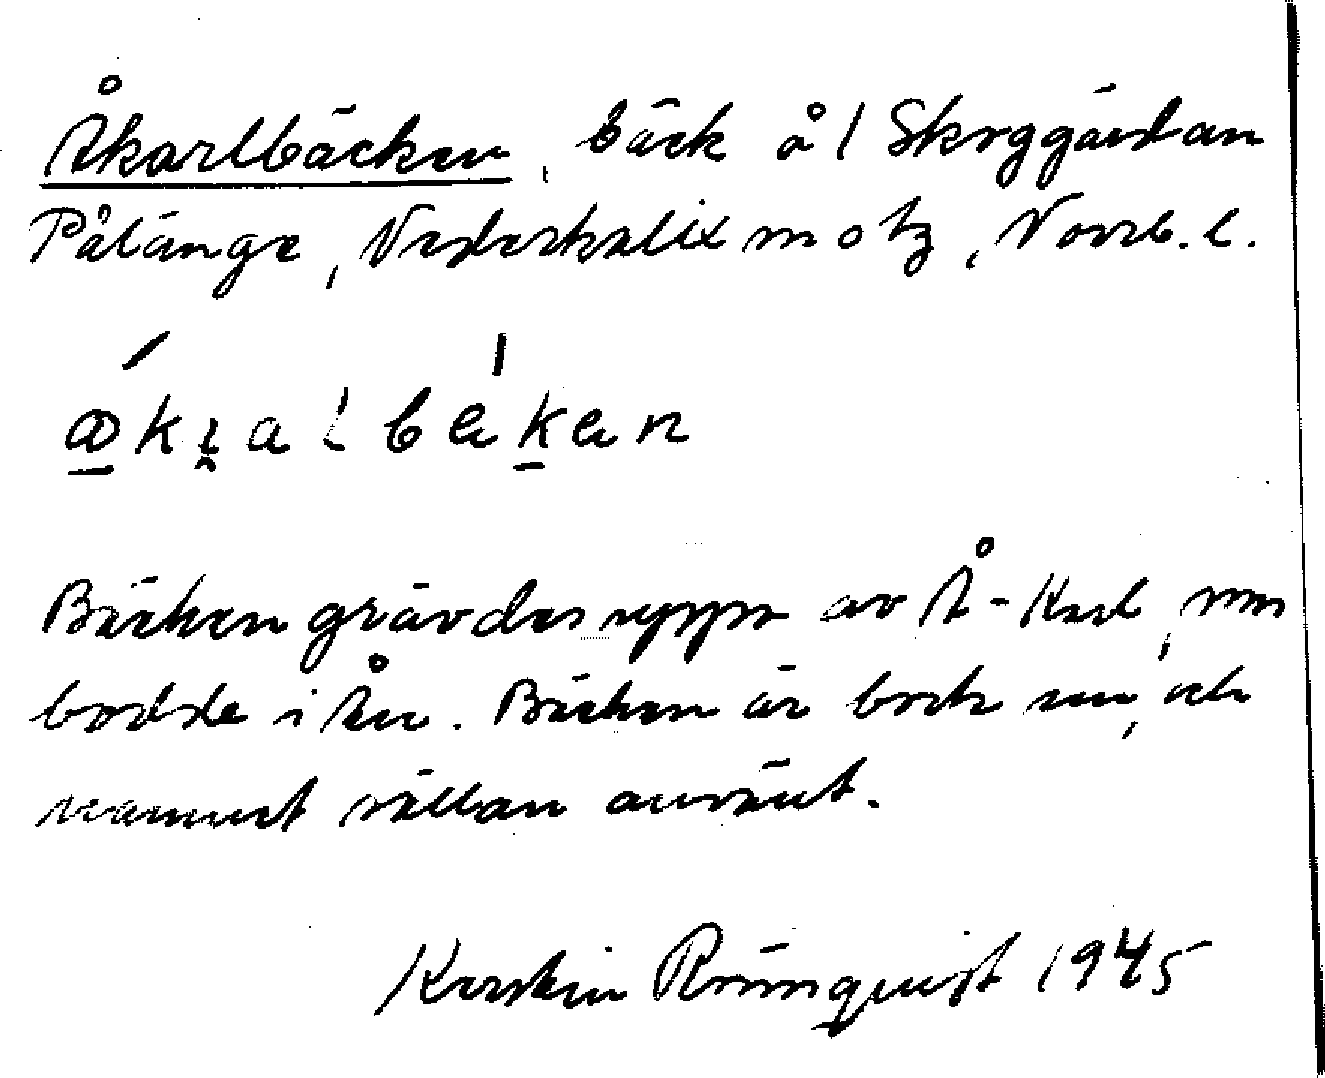 Åkarlbäcken, bäck å l Skoggärdan
Pålänge, Nederkalix m o tg, Norrb. l.
Bäcken grävdes upp av Å-Karl, som
bodde i Ån. Bäcken är borta nu, och
namnet sällan använt.
Kerstin Rönnquist 1945